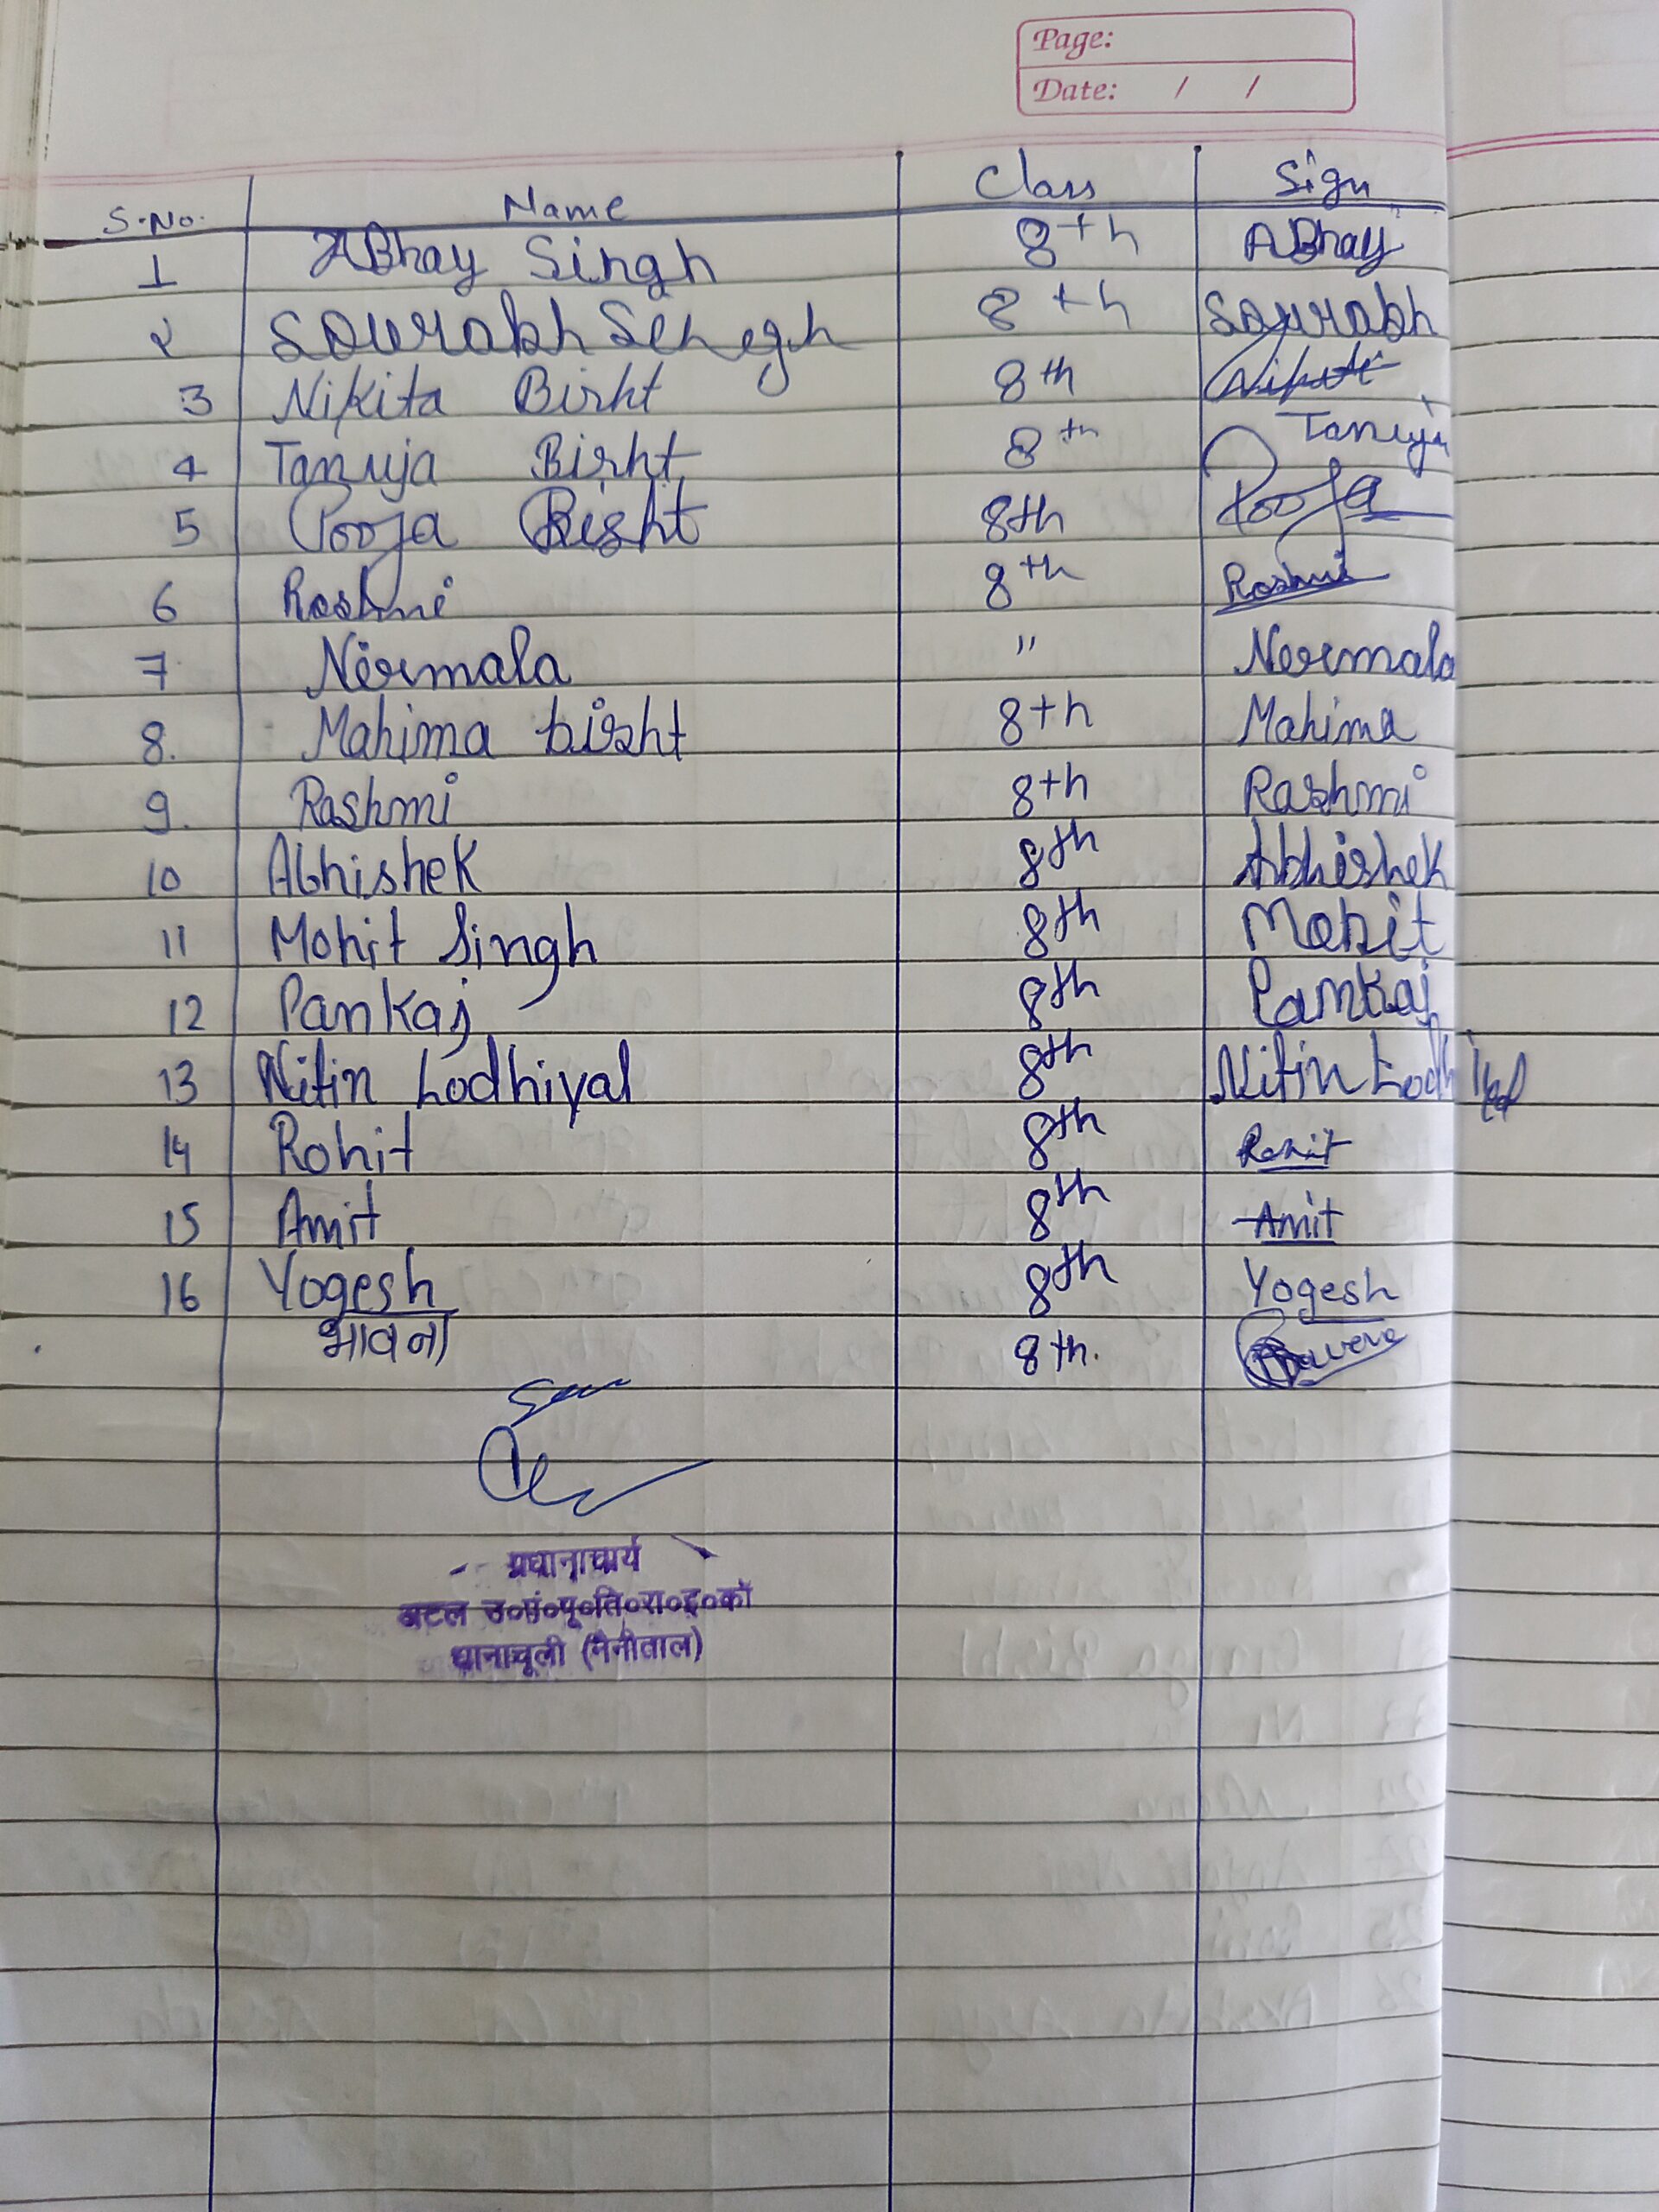 Page:
Date: / /
S.No. Name Class Sign
1 ABhay Singh 8th ABhay
2 Sourabh 8th Sourabh
3 Nikita Bisht 8th Nikita
4 Tanuja Bisht 8th Tanuja
5 Pooja Bisht 8th Pooja
6 Rashmi 8th Rashmi
7. Nirmala " Nirmala
8. Mahima bisht 8th Mahima
9. Rashmi 8th Rashmi
10 Abhishek 8th Abhishek
11 Mohit Singh 8th Mohit
12 Pankaj 8th Pankaj
13 Nitin Lodhiyal 8th Nitin Lodhiyal
14 Rohit 8th Rohit
15 Amit 8th Amit
16 Yogesh 8th Yogesh
भावना 8th.
प्रधानाचार्य
अटल उ०उ०पू०ति०रा०इ०कॉ
धानाचूली (नैनीताल)